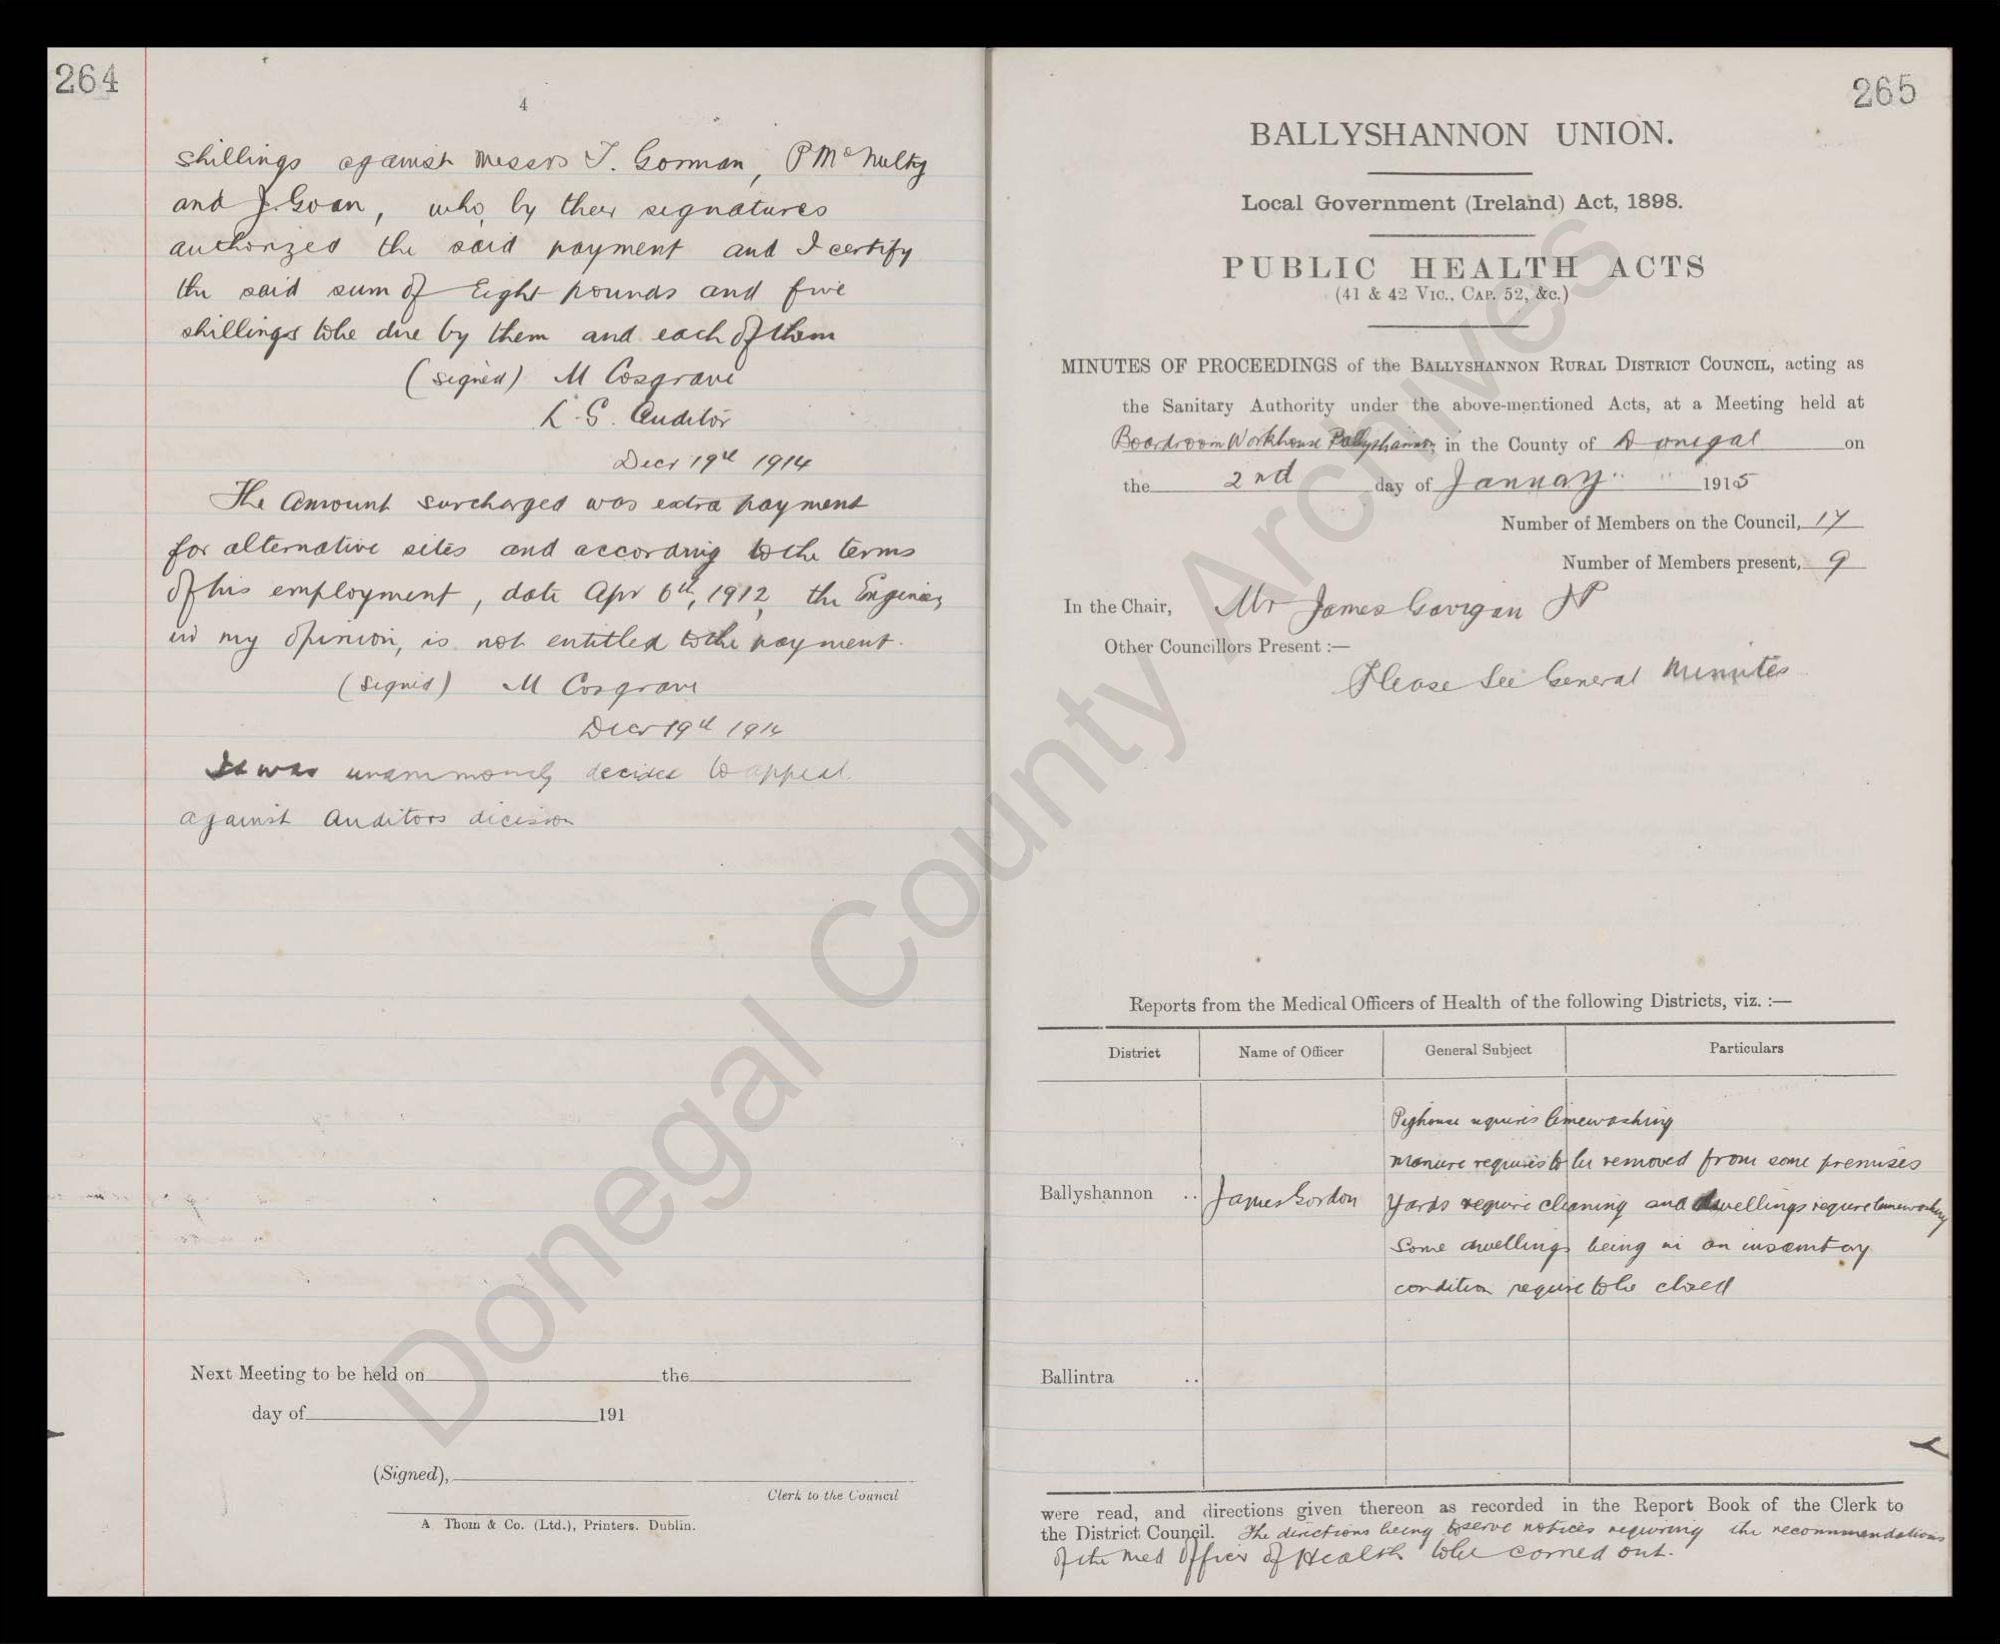 264
4
shillings against Messrs T. Gorman, P McNulty
and J. Goan, who, by their signatures
authorized the said payment and I certify
the said sum of Eight pounds and five
shillings to be due by them and each of them
(signed) M Cosgrave
L. G. Auditor
Decr 19th 1914
The Amount surcharged was extra payment
for alternative sites and according to the terms
of his employment, date Apr 6th, 1912, the Engineer,
in my opinion, is not entitled to the payment.
(Signed) M Cosgrave
Decr 19th 1914
It was unanimously decided to appeal
against Auditors decision
Next Meeting to be held on the
day of 191
(Signed),
Clerk to the Council
A Thom & Co. (Ltd.), Printers. Dublin.
265
BALLYSHANNON UNION.
Local Government (Ireland) Act, 1898.
PUBLIC HEALTH ACTS
(41 & 42 Vic., Cap. 52, &c.)
MINUTES OF PROCEEDINGS of the Ballyshannon Rural District Council, acting as
the Sanitary Authority under the above-mentioned Acts, at a Meeting held at
Boardroom Workhouse Ballyshannon, in the County of Donegal on
the 2nd day of January 1915
Number of Members on the Council, 17
Number of Members present, 9
In the Chair, Mr James Gavigan JP
Other Councillors Present :—
Please See General Minutes
Reports from the Medical Officers of Health of the following Districts, viz. :—
District Name of Officer General Subject Particulars
Pighouse requires limewashing
Manure requires to be removed from some premises
Ballyshannon .. James Gordon Yards require cleaning and dwellings require limewashing
Some dwellings being in an insanitary
condition require to be closed
Ballintra ..
were read, and directions given thereon as recorded in the Report Book of the Clerk to
the District Council. The directions being to serve notices requiring the recommendations
of the Med Officer of Health to be carried out.
Donegal County Archives